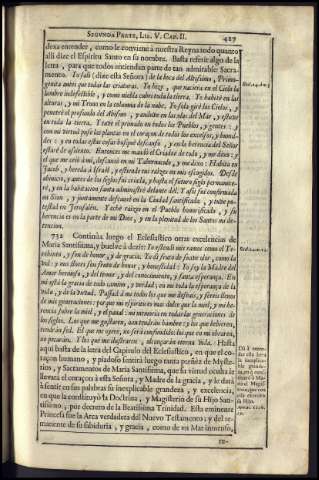 SEGUNDA PARTE, LIB. V. CAP. II. 427
dexa entender, como le conviene à nuestra Reyna todo quanto
alli dize el Espiritu Santo en su nombre. Basta referir algo de la
letra, para que todos entiendan parte de tan admirable Sacra-
mento. Yo sali (dize esta Señora) de la boca del Altissimo, Primo-
genita antes que todas las criaturas. Yo hize, que naciera en el Cielo la
lumbre indefectible, y como niebla cubrì toda la tierra. Yo habitè en las
alturas, y mi Trono en la columna de la nube. Yo sola girè los Cielos, y
penetrè el profundo del Abismo, y anduve en las olas del Mar, y estuve
en toda la tierra. Tuve el primado en todos los Pueblos, y gentes: y
con mi virtud pise las plantas en el coraçon de todos los excelsos, y humil-
des: y en todas estas cosas busquè descanso, y en la herencia del Señor
estarè de assiento. Entonces me mandò el Criador de todo, y me dixo: y
el que me criò à mi, descansò en mi Tabernaculo, y me dixo: Habita en
Jacob, y hereda à Israèl, y estiende tus raizes en mis escogidos. Desde
ab initio, y antes de los siglos fui criada, y hasta el futuro siglo permane-
rè, y en la habitacion santa administrè delante dèl. Y assi fui confirmada
en Sion, y juntamente descansè en la Ciudad santificada, y tuve po-
testad en Jerusalèn. Y echè raizes en el Pueblo honorificado, y su
herencia es en la parte de mi Dios, y en la plenitud de los Santos mi de-
tencion.
732 Continùa luego el Eclesiastico otras excelencias de
Maria Santissima, y buelve à dezir: Yo estendi mis ramos como el Te-
rebinto, y son de honor, y de gracia. Yo dì fruto de suave olor, como la
vid: y mis flores son fruto de honor, y honestidad: Yo soy la Madre del
Amor hermoso, y del temor, y del conocimiento, y santa esperança. En
mi està la gracia de todo camino, y verdad; en mi toda la esperança de la
vida, y de la virtud. Passad à mi todos los que me deseais, y sereis llenos
de mis generaciones: porque mi espiritu es mas dulce que la miel, y mi he-
rencia sobre la miel, y el panal: mi memoria en todas las generaciones de
los siglos. Los que me gustaren, aun tendràn hambre: y los que bebieren,
tendràn sed. El que me oyere, no serà confundido: los que en mi obraren,
no pecaràn. Y los que me ilustraren, alcançaràn eterna vida. Hasta
aqui basta de la letra del Capitulo del Eclesiastico, en que el co-
raçon humano, y piadoso sentirà luego tanta preñèz de Myste-
rios, y Sacramentos de Maria Santissima, que su virtud oculta le
llevarà el coraçon à esta Señora, y Madre de la gracia, y le darà
à sentir en sus palabras la inexplicable grandeza, y excelencia,
en que la constituyò la Doctrina, y Magisterio de su Hijo San-
tissimo, por decreto de la Beatissima Trinidad. Esta eminente
Princesa fue la Arca verdadera del Nuevo Testamento; y del re-
manente de su sabiduria, y gracia, como de un Mar inmenso,